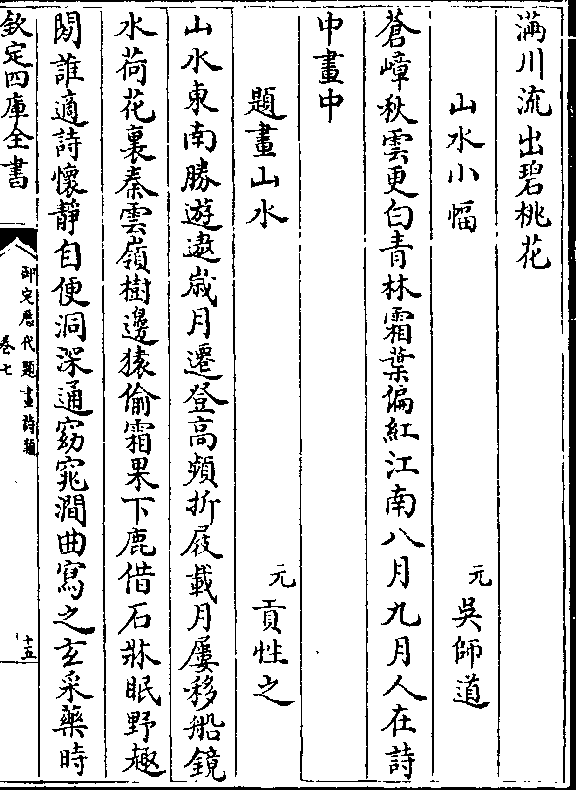 滿川流出碧桃花
山水小幅
元 吳師道
蒼嶂秋雲更白青林霜葉偏紅江南八月九月人在詩
中畫中
題畫山水
元 貢性之
山水東南勝遊遨歲月遷登高頻折屐載月屢移船鏡
水荷花裏秦雲嶺樹邊猿偷霜果下鹿借石牀眠野趣
閱誰適詩懷靜自便洞深通窈窕澗曲寫之玄采藥時
欽定四庫全書
御定歷代題畫詩類
卷七
十五